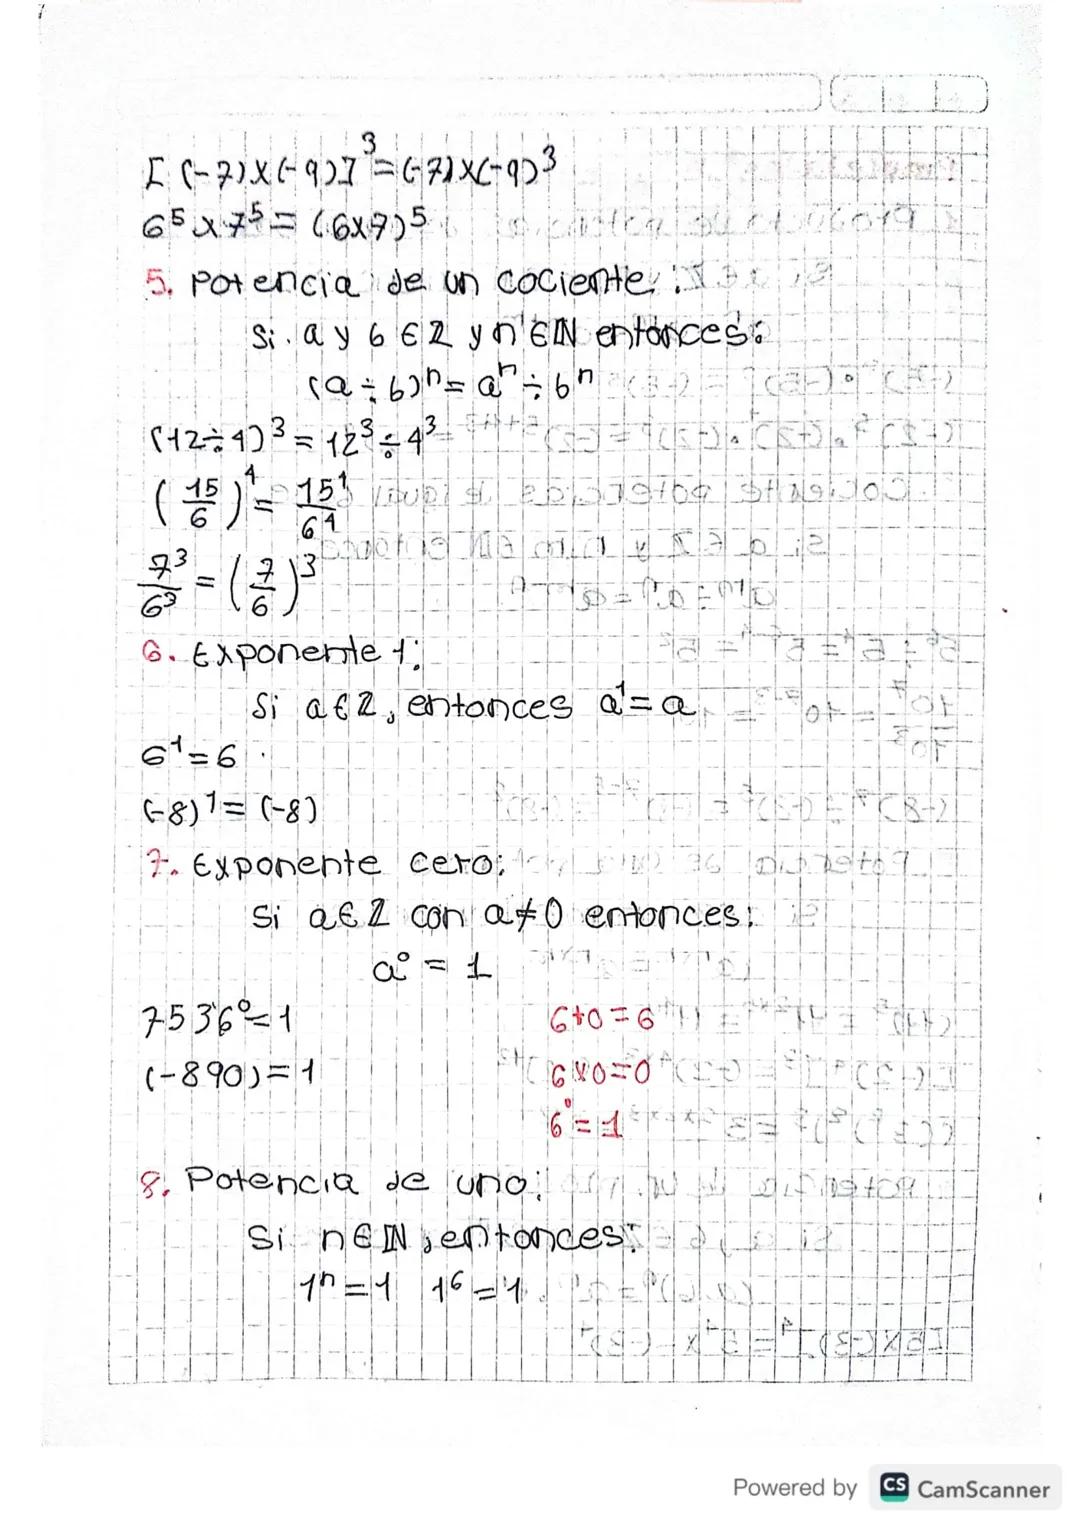 [(-7)×(-9)]³=(-7)×(-9)³
6⁵×7⁵=(6×7)⁵
5. Potencia de un cociente:
Si a y b ∈ Z y n ∈ N entonces:
(a÷b)ⁿ=aⁿ÷bⁿ
(12÷4)³=12³÷4³
(15/6)⁴=15⁴/6⁴
7³/6³=(7/6)³
6. Exponente 1:
Si a∈Z, entonces a¹=a
6¹=6
(-8)¹=(-8)
7. Exponente cero:
Si a∈Z con a≠0 entonces:
a⁰=1
7536⁰=1 6+0=6
(-890)=1 6×0=0
6⁰=1
8. Potencia de uno:
Si n∈N, entonces:
1ⁿ=1 1⁶=1
Powered by CS CamScanner